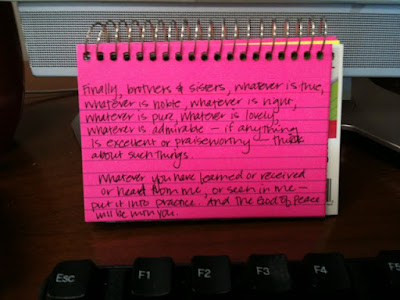 Finally, brothers & sisters, whatever is true,
whatever is noble, whatever is right,
whatever is pure, whatever is lovely,
whatever is admirable — if anything
is excellent or praiseworthy — think
about such things.
Whatever you have learned or received
or heard from me, or seen in me —
put it into practice. And the God of Peace
will be with you.
Esc F1 F2 F3 F4 F5